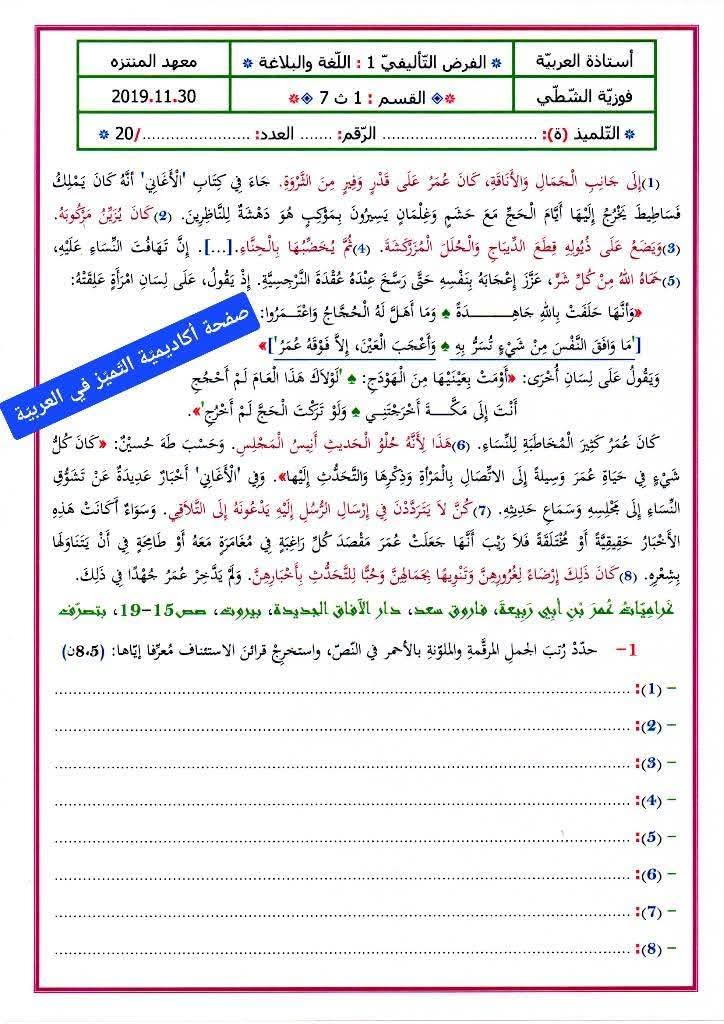 أستاذة العربيّة * الفرض التّأليفيّ 1 : اللّغة والبلاغة * معهد المنتزه
فوزيّة الشّطّي * القسم : 1 ث 7 * 2019.11.30
* التّلميذ (ة): ................................ الرّقم: ....... العدد: ....................../20 *
(1)إِلَى جَانِبِ الْجَمَالِ وَالأَنَاقَةِ، كَانَ عُمَرُ عَلَى قَدْرٍ وَفِيرٍ مِنَ الثَّرْوَةِ. جَاءَ فِي كِتَابِ 'الْأَغَانِي' أنَّهُ كَانَ يَمْلِكُ
فَسَاطِيطَ يَخْرُجُ إِلَيْهَا أَيَّامَ الْحَجِّ مَعَ حَشَمٍ وَغِلْمَانٍ يَسِيرُونَ بِمَوْكِبٍ هُوَ دَهْشَةٌ لِلنَّاظِرِينَ. (2)كَانَ يُزَيِّنُ مَرْكُوبَهُ.
(3)وَيَضَعُ عَلَى ذُيُولِهِ قِطَعَ الدِّيبَاجِ وَالْحُلَلَ الْمُزَرْكَشَةَ. (4)ثُمَّ يُخَضِّبُهَا بِالْحِنَّاءِ.[...]. إِنَّ تَهَافُتَ النِّسَاءِ عَلَيْهِ،
(5)حَمَاهُ اللهُ مِنْ كُلِّ شَرٍّ، عَزَّزَ إِعْجَابَهُ بِنَفْسِهِ حَتَّى رَسَّخَ عِنْدَهُ عُقْدَةَ النَّرْجِسِيَّةِ. إِذْ يَقُولُ، عَلَى لِسَانِ امْرَأَةٍ عَلِقَتْهُ:
«وَأَنَّهَا حَلَفَتْ بِاللهِ جَاهِـــــدَةً ♠ وَمَا أَهَلَّ لَهُ الْحُجَّاجُ وَاعْتَمَرُوا:
['مَا وَافَقَ النَّفْسَ مِنْ شَيْءٍ تُسَرُّ بِهِ ♠ وَأَعْجَبَ الْعَيْنَ، إِلاَّ فَوْقَهُ عُمَرُ']»
صفحة أكاديميّة التّميّز في العربيّة
وَيَقُولُ عَلَى لِسَانِ أُخْرَى: «أَوْمَتْ بِعَيْنَيْهَا مِنَ الْهَوْدَجِ: ♠ 'لَوْلاَكَ هَذَا الْعَامَ لَمْ أَحْجُجِ
أَنْتَ إِلَى مَكَّـــةَ أَخْرَجْتَنِي ♠ وَلَوْ تَرَكْتَ الْحَجَّ لَمْ أَخْرُجِ'».
كَانَ عُمَرُ كَثِيرَ الْمُخَاطَبَةِ لِلنِّسَاءِ. (6)هَذَا لِأَنَّهُ حُلْوُ الْحَدِيثِ أَنِيسُ الْمَجْلِسِ. وَحَسْبَ طَهَ حُسَيْنْ: «كَانَ كُلُّ
شَيْءٍ فِي حَيَاةِ عُمَرَ وَسِيلَةً إِلَى الاتِّصَالِ بِالْمَرْأَةِ وَذِكْرِهَا وَالتَّحَدُّثِ إِلَيْهَا». وَفِي 'الْأَغَانِي' أَخْبَارٌ عَدِيدَةٌ عَنْ تَشَوُّقِ
النِّسَاءِ إِلَى مَجْلِسِهِ وَسَمَاعِ حَدِيثِهِ. (7)كُنَّ لاَ يَتَرَدَّدْنَ فِي إِرْسَالِ الرُّسُلِ إِلَيْهِ يَدْعُونَهُ إِلَى التَّلاَقِي. وَسَوَاءٌ أَكَانَتْ هَذِهِ
الأَخْبَارُ حَقِيقِيَّةً أَوْ مُخْتَلَقَةً فَلاَ رَيْبَ أَنَّهَا جَعَلَتْ عُمَرَ مَقْصَدَ كُلِّ رَاغِبَةٍ فِي مُغَامَرَةٍ مَعَهُ أَوْ طَامِحَةٍ فِي أَنْ يَتَنَاوَلَهَا
بِشِعْرِهِ. (8)كَانَ ذَلِكَ إِرْضَاءً لِغُرُورِهِنَّ وَتَنْوِيهًا بِجَمَالِهِنَّ وَحُبًّا لِلتَّحَدُّثِ بِأَخْبَارِهِنَّ. وَلَمْ يَدَّخِرْ عُمَرُ جُهْدًا فِي ذَلِكَ.
غراميّات عُمَرَ بْنِ أَبِي رَبِيعَةَ، فاروق سعد، دار الآفاق الجديدة، بيروت، صص15-19، بتصرّف
1- حدّدْ رُتبَ الجملِ المرقَّمةِ والملوّنةِ بالأحمر في النّصّ، واستخرِجْ قرائنَ الاستئناف مُعرِّفا إيّاها: (8،5ن)
– (1): ................................................................
– (2): ................................................................
– (3): ................................................................
– (4): ................................................................
– (5): ................................................................
– (6): ................................................................
– (7): ................................................................
– (8): ................................................................